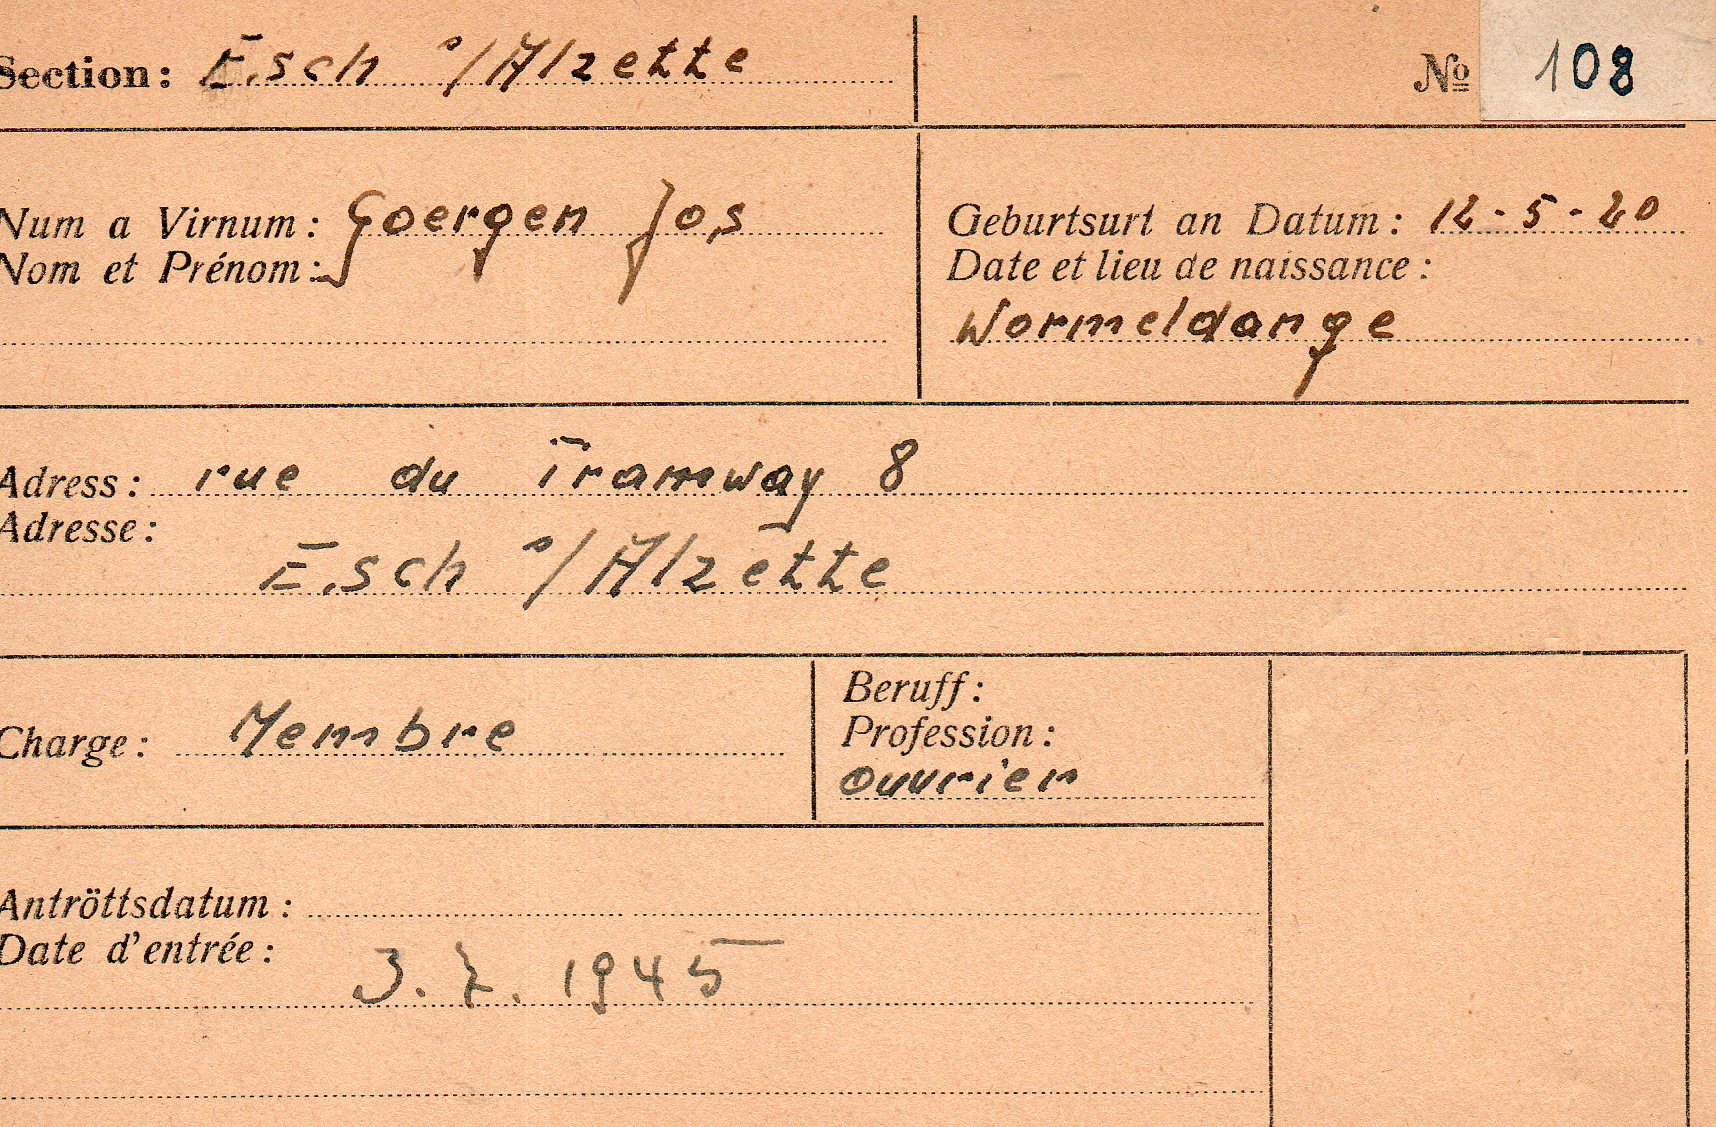 Section: Esch s/Alzette
No 108
Num a Virnum: Goergen Jos
Nom et Prénom:
Geburtsurt an Datum: 12-5-20
Date et lieu de naissance:
Wormeldange
Adress: rue du Tramway 8
Adresse:
Esch s/Alzette
Charge: Membre
Beruff:
Profession:
ouvrier
Antröttsdatum:
Date d'entrée:
3.7.1945